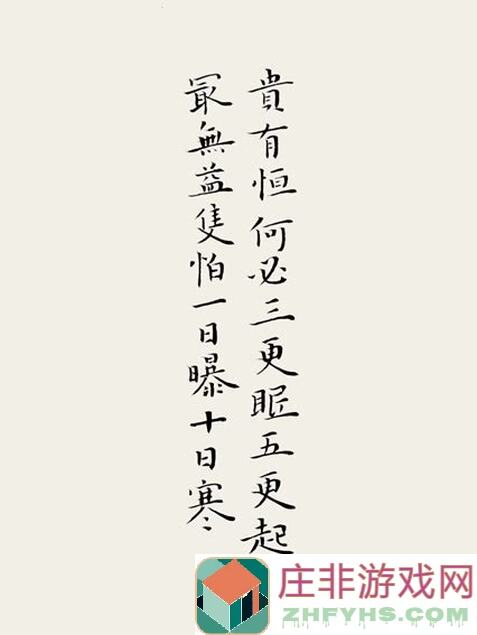 貴有恒何必三更眠五更起
最無益隻怕一日曝十日寒
庄非游戏网
ZHFYHS.COM